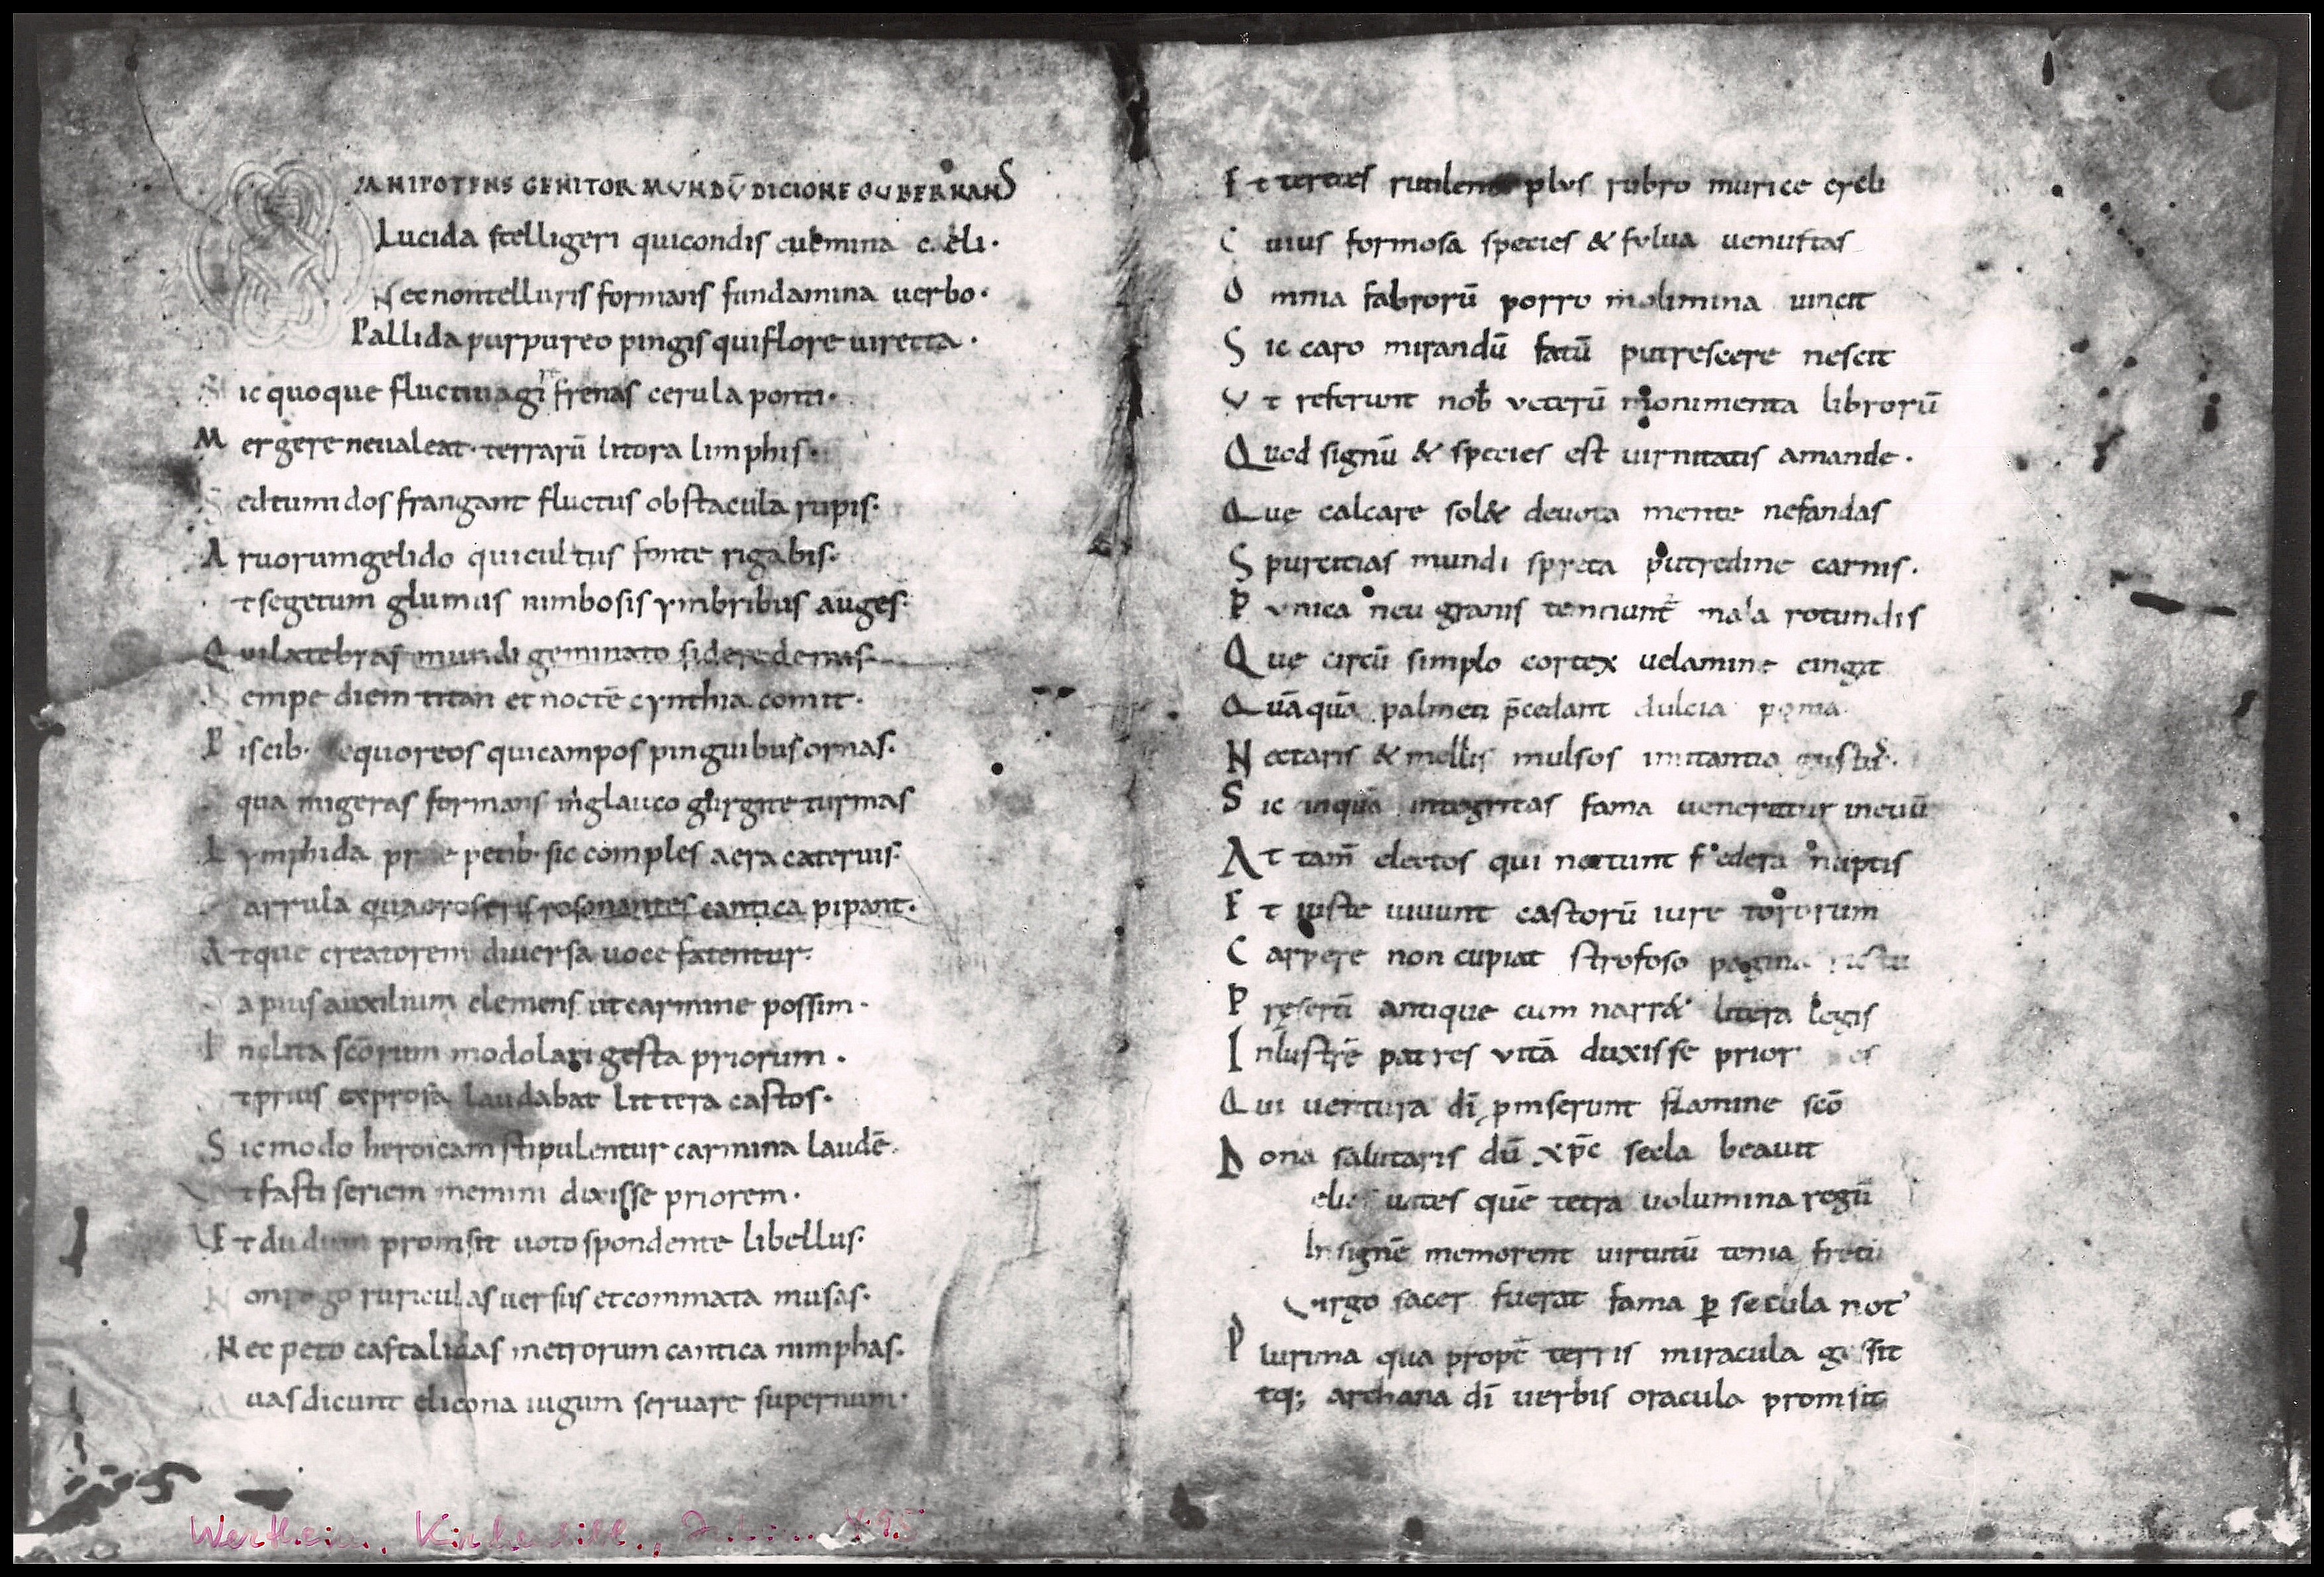 OMNIPOTENS GENITOR MVNDŪ DICIONE GVBERNANS
Lucida stelligeri quicondis culmina cæli·
Necnontelluris formans fundamina uerbo·
Pallida purpureo pingis quiflore uiretta·
Sic quoque fluctiuagi frenas cerula ponti·
Mergere neualeat· terrarū litora limphis·
Sedtumidos frangant fluctus obstacula rupis·
Aruorumgelido quicultus fonte rigabis·
tsegetum glumas nimbosis ymbribus auges·
Quilatebras mundi geminato sideredemis·
Nempe diem titan et noctē cynthia comit·
Piscib· equoreos quicampos pinguibusornas·
qua migeras formans inglauco gurgite turmas
Lymphida petib· sic comples aera cateruis·
arrula quaerostris resonantes cantica pipant·
Atque creatorem diuersa uoce fatentur·
a piusauxilium clemens utcarmine possim·
Inclita scōrum modolari gesta priorum·
tprius exprosa laudabat littera castos·
Sicmodo heroicam stipulentur carmina laudē·
tfasti seriem memini dixisse priorem·
Et dudum promisit uoto spondente libellus·
Non rogo ruriculas uersus etcommata musas·
Nec peto castalidas metrorum cantica nimphas·
uasdicunt elicona iugum seruare supernum·
Et terties rutilem plus rubro murice cycli
Cuius formosa species & fulua uenustas
Omnia fabrorū porro molimina uincit
Sic caro mirandū fatū putrescere nescit
Vt referunt nob̄ veterū monumenta librorū
Quod signū & species est uirnitatis amande·
Que calcare sol& deuota mente nefandas
Spurcitias mundi spreta putredine carnis·
Punica neu granis tenciunt̄ mala rotundis
Que circū simplo cortex uelamine cingit
Quāquā palmeti p̄cedant dulcia poma
Nectaris & mellis mulsos imitantia gustus·
Sic inquā integritas fama ueneratur ineuū
At tam̄ electos qui nectunt foedera nuptis
Et iuste uiuunt castorū iure tororum
Carpere non cupiat strofoso pagina rictu
Presertī antique cum narr& litera legis
Inlustrē patres vitā duxisse prior es
Qui uentura dī pmserunt flamine scō
Dona salutaris dū xp̄c secla beauit
uates quē tetra uolumina regū
Insignē memorent uirtutū tema fretū
Virgo sacer fuerat fama ꝑ secula not'
Plurima qua propt̄ terris miracula gessit
tq; archana dī uerbis oracula promsit
Wertheim, Kirchenbibl.,